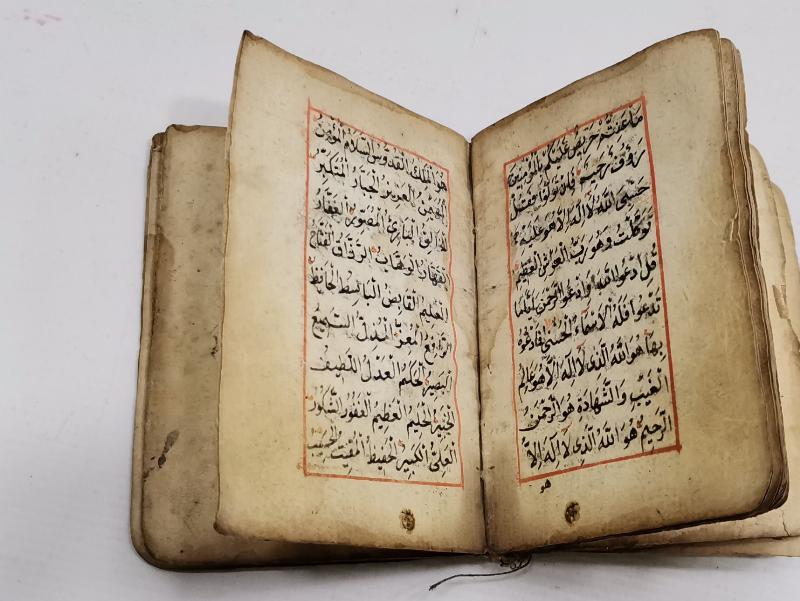 ما عنتم حريص عليكم بالمؤمنين
رؤف رحيم فان تولوا فقل
حسبى الله لا اله الا هو عليه
توكلت وهو رب العرش العظيم
قل دعوا الله او ادعوا الرحمن ايًا ما
تدعوا فله الاسماء الحسنى فادعوه
بها هو الله الذى لا اله الا هو عالم
الغيب والشهادة هو الرحمن
الرحيم هو الله الذى لا اله الا
هو
هو الملك القدوس السلام المؤمن
المهيمن العزيز الجبار المتكبر
الخالق البارئ المصور الغفار
القهار الوهاب الرزاق الفتاح
العليم القابض الباسط الخافظ
الرافع المعز المذل السميع
البصير الحكم العدل اللطيف
الخبير الحليم العظيم الغفور الشكور
العلى الكبير الحفيظ المقيت الحسيب